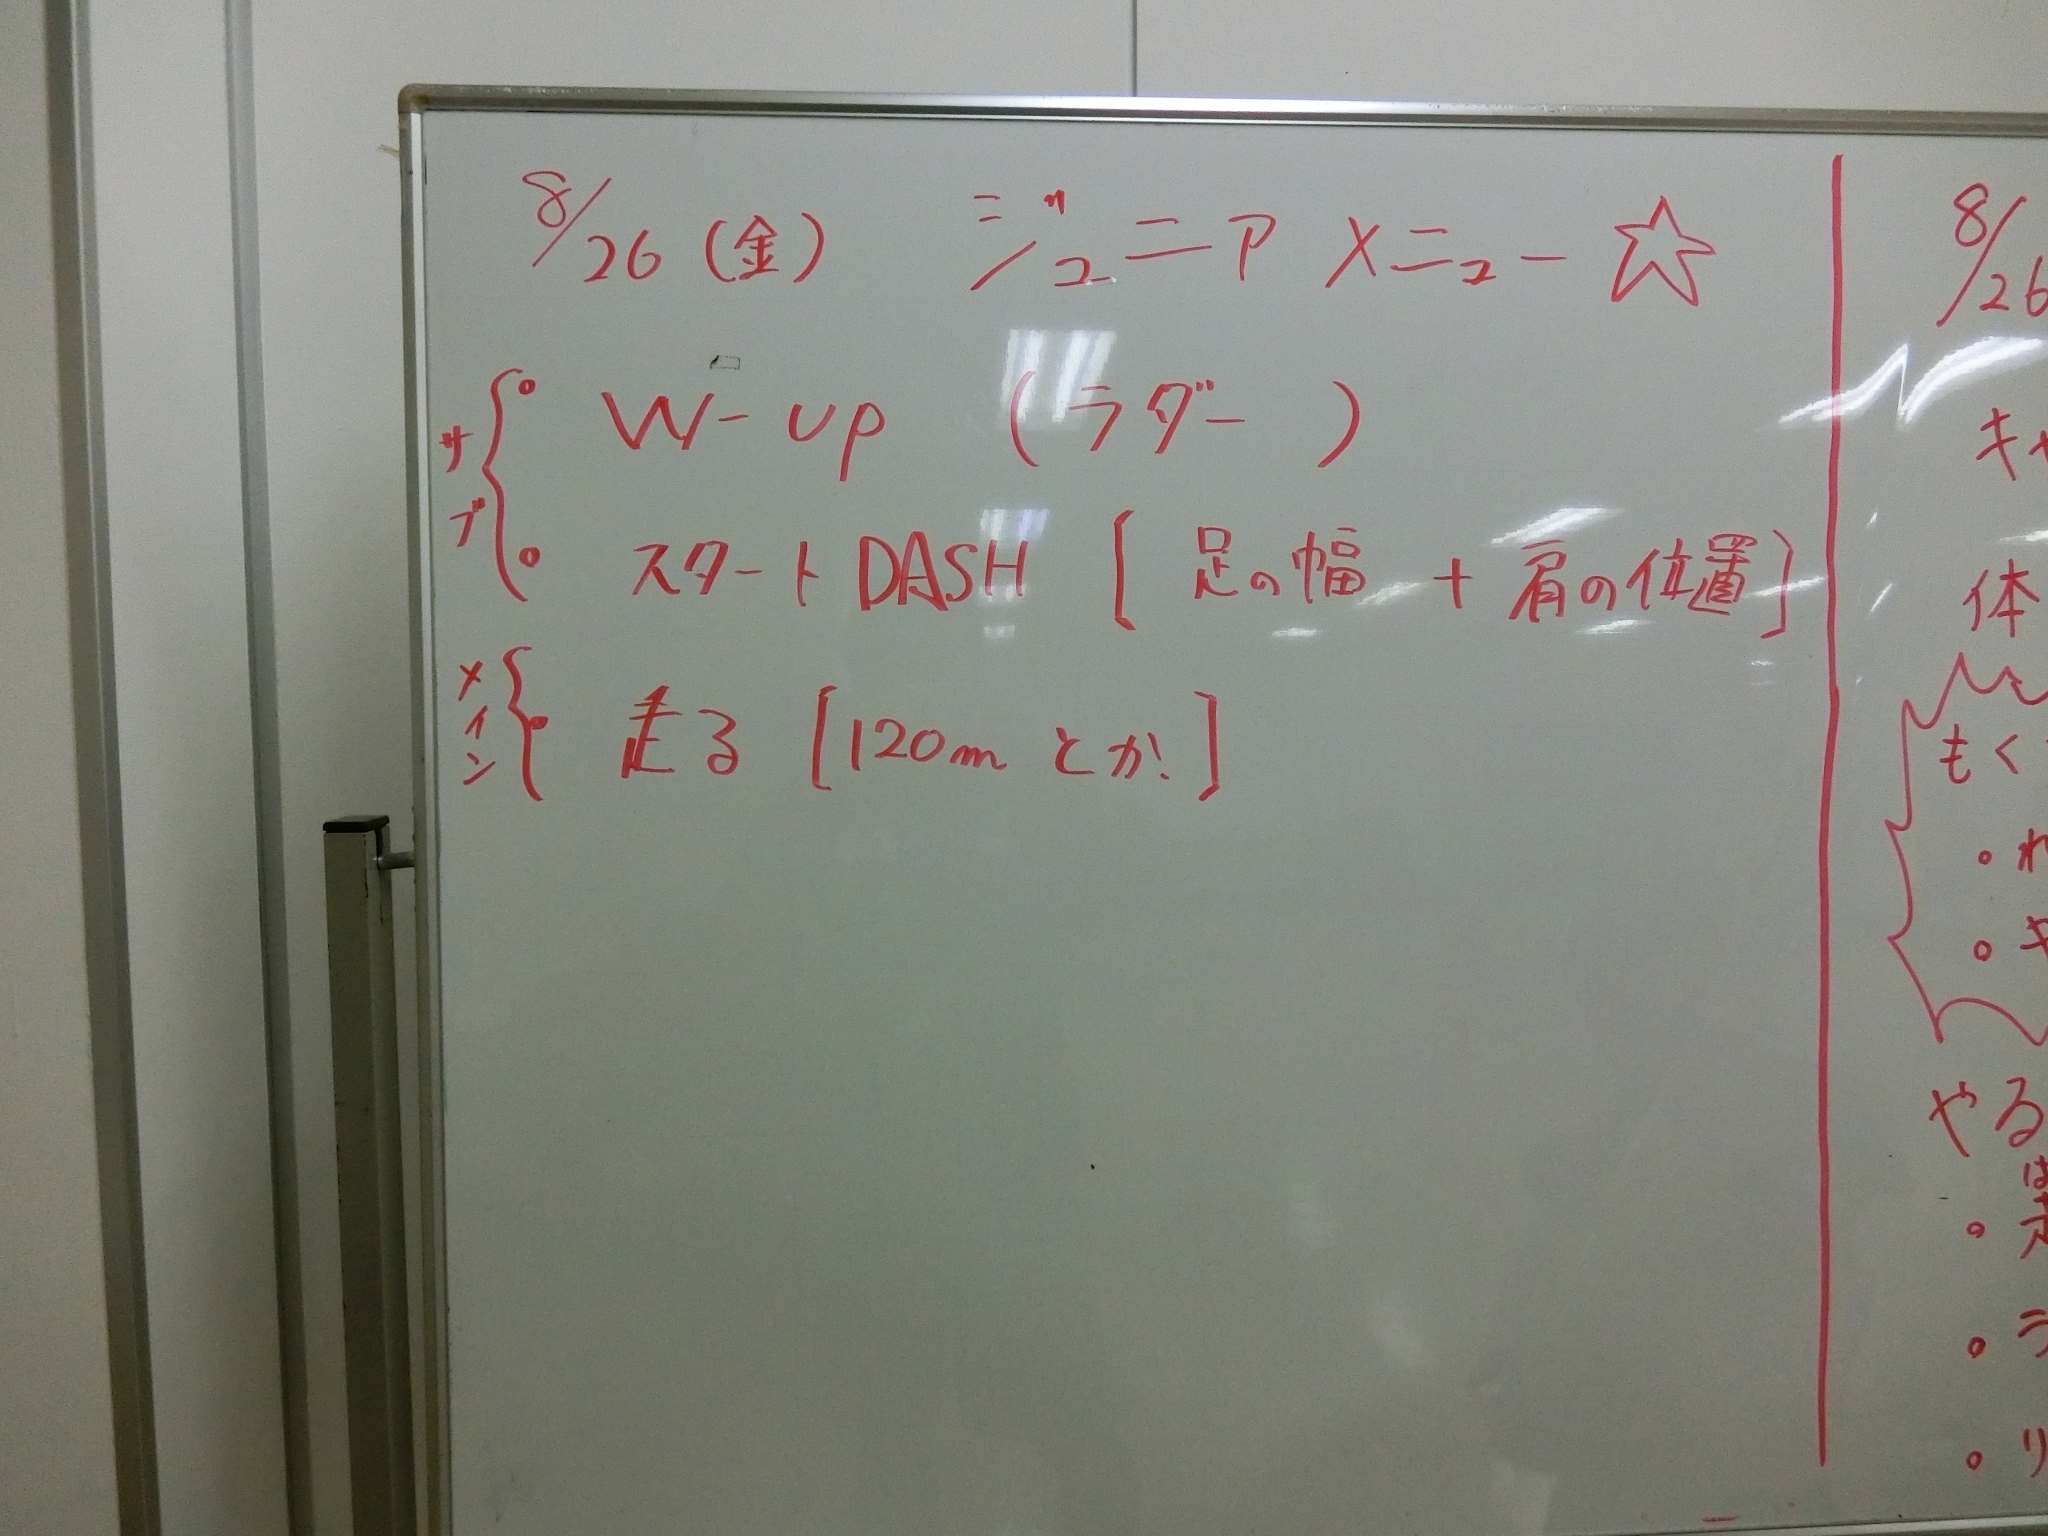 8/26 (金) ジュニア メニュー ☆
サブ
• W-up (ラダー )
• スタート DASH [足の幅 + 肩の位置]
メイン
• 走る [120m とか]
8/26
キャ
体
もく
•
• キ
やる
•
• ラ
• リ